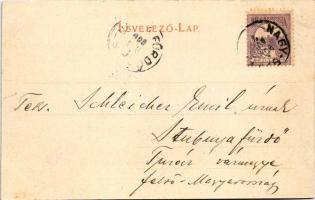 LEVELEZŐ-LAP.
NAGY-S
FÜRDŐ
Tek. Schleicher Emil úrnak
Stubnyafürdő
Turócz vármegye
felső-Magyarország